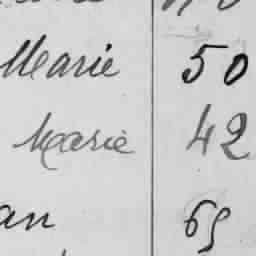 Marie 50
Marie 42
an 65